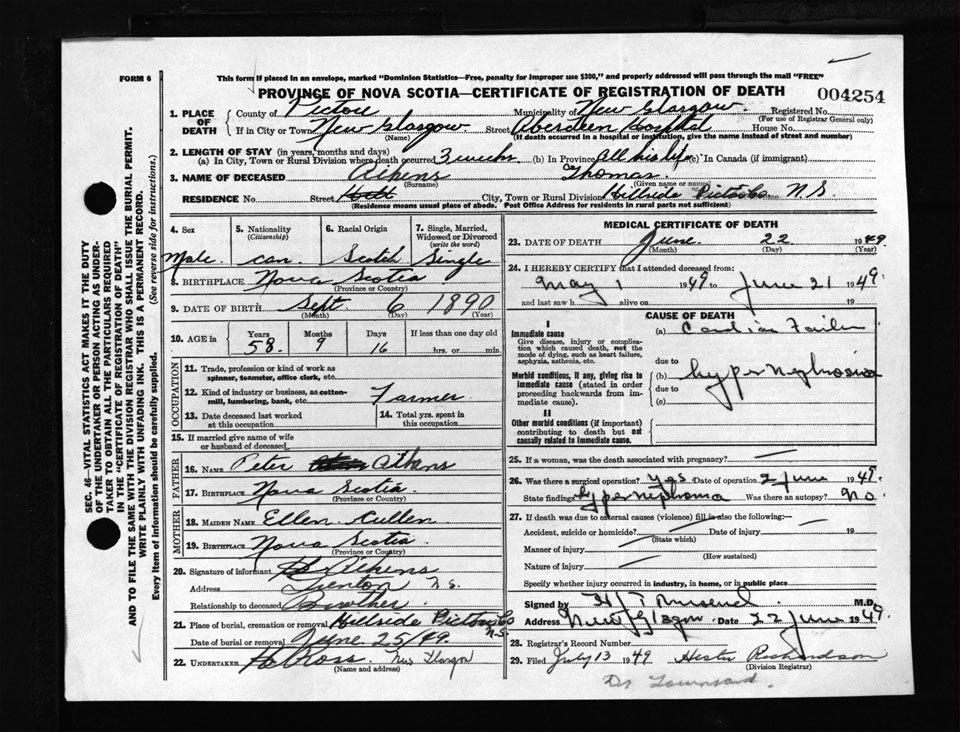 FORM 6
This form if placed in an envelope, marked "Dominion Statistics—Free, penalty for improper use $300," and properly addressed will pass through the mail "FREE"
PROVINCE OF NOVA SCOTIA—CERTIFICATE OF REGISTRATION OF DEATH
004254
SEC. 46—VITAL STATISTICS ACT MAKES IT THE DUTY
OF THE UNDERTAKER OR PERSON ACTING AS UNDER-
TAKER TO OBTAIN ALL THE PARTICULARS REQUIRED
IN THE "CERTIFICATE OF REGISTRATION OF DEATH"
AND TO FILE THE SAME WITH THE DIVISION REGISTRAR WHO SHALL ISSUE THE BURIAL PERMIT.
WRITE PLAINLY WITH UNFADING INK. THIS IS A PERMANENT RECORD.
Every item of information should be carefully supplied. (See reverse side for instructions.)
1. PLACE OF DEATH
County of Pictou Municipality of New Glasgow Registered No.
(For use of Registrar General only)
If in City or Town New Glasgow Street Aberdeen Hospital House No.
(Name) (If death occurred in a hospital or institution, give the name instead of street and number)
2. LENGTH OF STAY (in years, months and days)
(a) In City, Town or Rural Division where death occurred 3 weeks (b) In Province All his life (c) In Canada (if immigrant)
3. NAME OF DECEASED Aikens Thomas
(Surname) (Given name or names)
RESIDENCE No. Street City, Town or Rural Division Hillside Pictou Co N.S.
(Residence means usual place of abode. Post Office Address for residents in rural parts not sufficient)
4. Sex Male
5. Nationality (Citizenship) Can.
6. Racial Origin Scotch
7. Single, Married, Widowed or Divorced (write the word) Single
8. BIRTHPLACE Nova Scotia
(Province or Country)
9. DATE OF BIRTH Sept 6 1890
(Month) (Day) (Year)
10. AGE in Years 58 Months 9 Days 16 If less than one day old
hrs. or min.
OCCUPATION
11. Trade, profession or kind of work as spinner, teamster, office clerk, etc.
12. Kind of industry or business, as cotton-mill, lumbering, bank, etc. Farmer
13. Date deceased last worked at this occupation
14. Total yrs. spent in this occupation
15. If married give name of wife or husband of deceased
FATHER
16. NAME Peter Aikens
17. BIRTHPLACE Nova Scotia
(Province or Country)
MOTHER
18. MAIDEN NAME Ellen Cullen
19. BIRTHPLACE Nova Scotia
(Province or Country)
20. Signature of informant Aikens
Address Trenton N.S.
Relationship to deceased Brother
21. Place of burial, cremation or removal Hillside Pictou Co N.S.
Date of burial or removal June 25/49
22. UNDERTAKER Ross New Glasgow
(Name and address)
MEDICAL CERTIFICATE OF DEATH
23. DATE OF DEATH June 22 1949
(Month) (Day) (Year)
24. I HEREBY CERTIFY that I attended deceased from:
May 1 1949 to June 21 1949
and last saw h alive on 19
CAUSE OF DEATH
I
Immediate cause
Give disease, injury or complication which caused death, not the mode of dying, such as heart failure, asphyxia, asthenia, etc.
(a) Cardiac Failure
due to
Morbid conditions, if any, giving rise to immediate cause (stated in order proceeding backwards from immediate cause).
(b) hypernephroma
due to
(c)
II
Other morbid conditions (if important) contributing to death but not causally related to immediate cause.
25. If a woman, was the death associated with pregnancy?
26. Was there a surgical operation? yes Date of operation 2 June 1949
State findings hypernephroma Was there an autopsy? No.
27. If death was due to external causes (violence) fill in also the following:—
Accident, suicide or homicide? Date of injury 19
(State which)
Manner of injury
(How sustained)
Nature of injury
Specify whether injury occurred in industry, in home, or in public place
Signed by M.D.
Address New Glasgow Date 22 June 1949
28. Registrar's Record Number
29. Filed July 13 1949 Hester Richardson
(Division Registrar)
Dr Townsend.